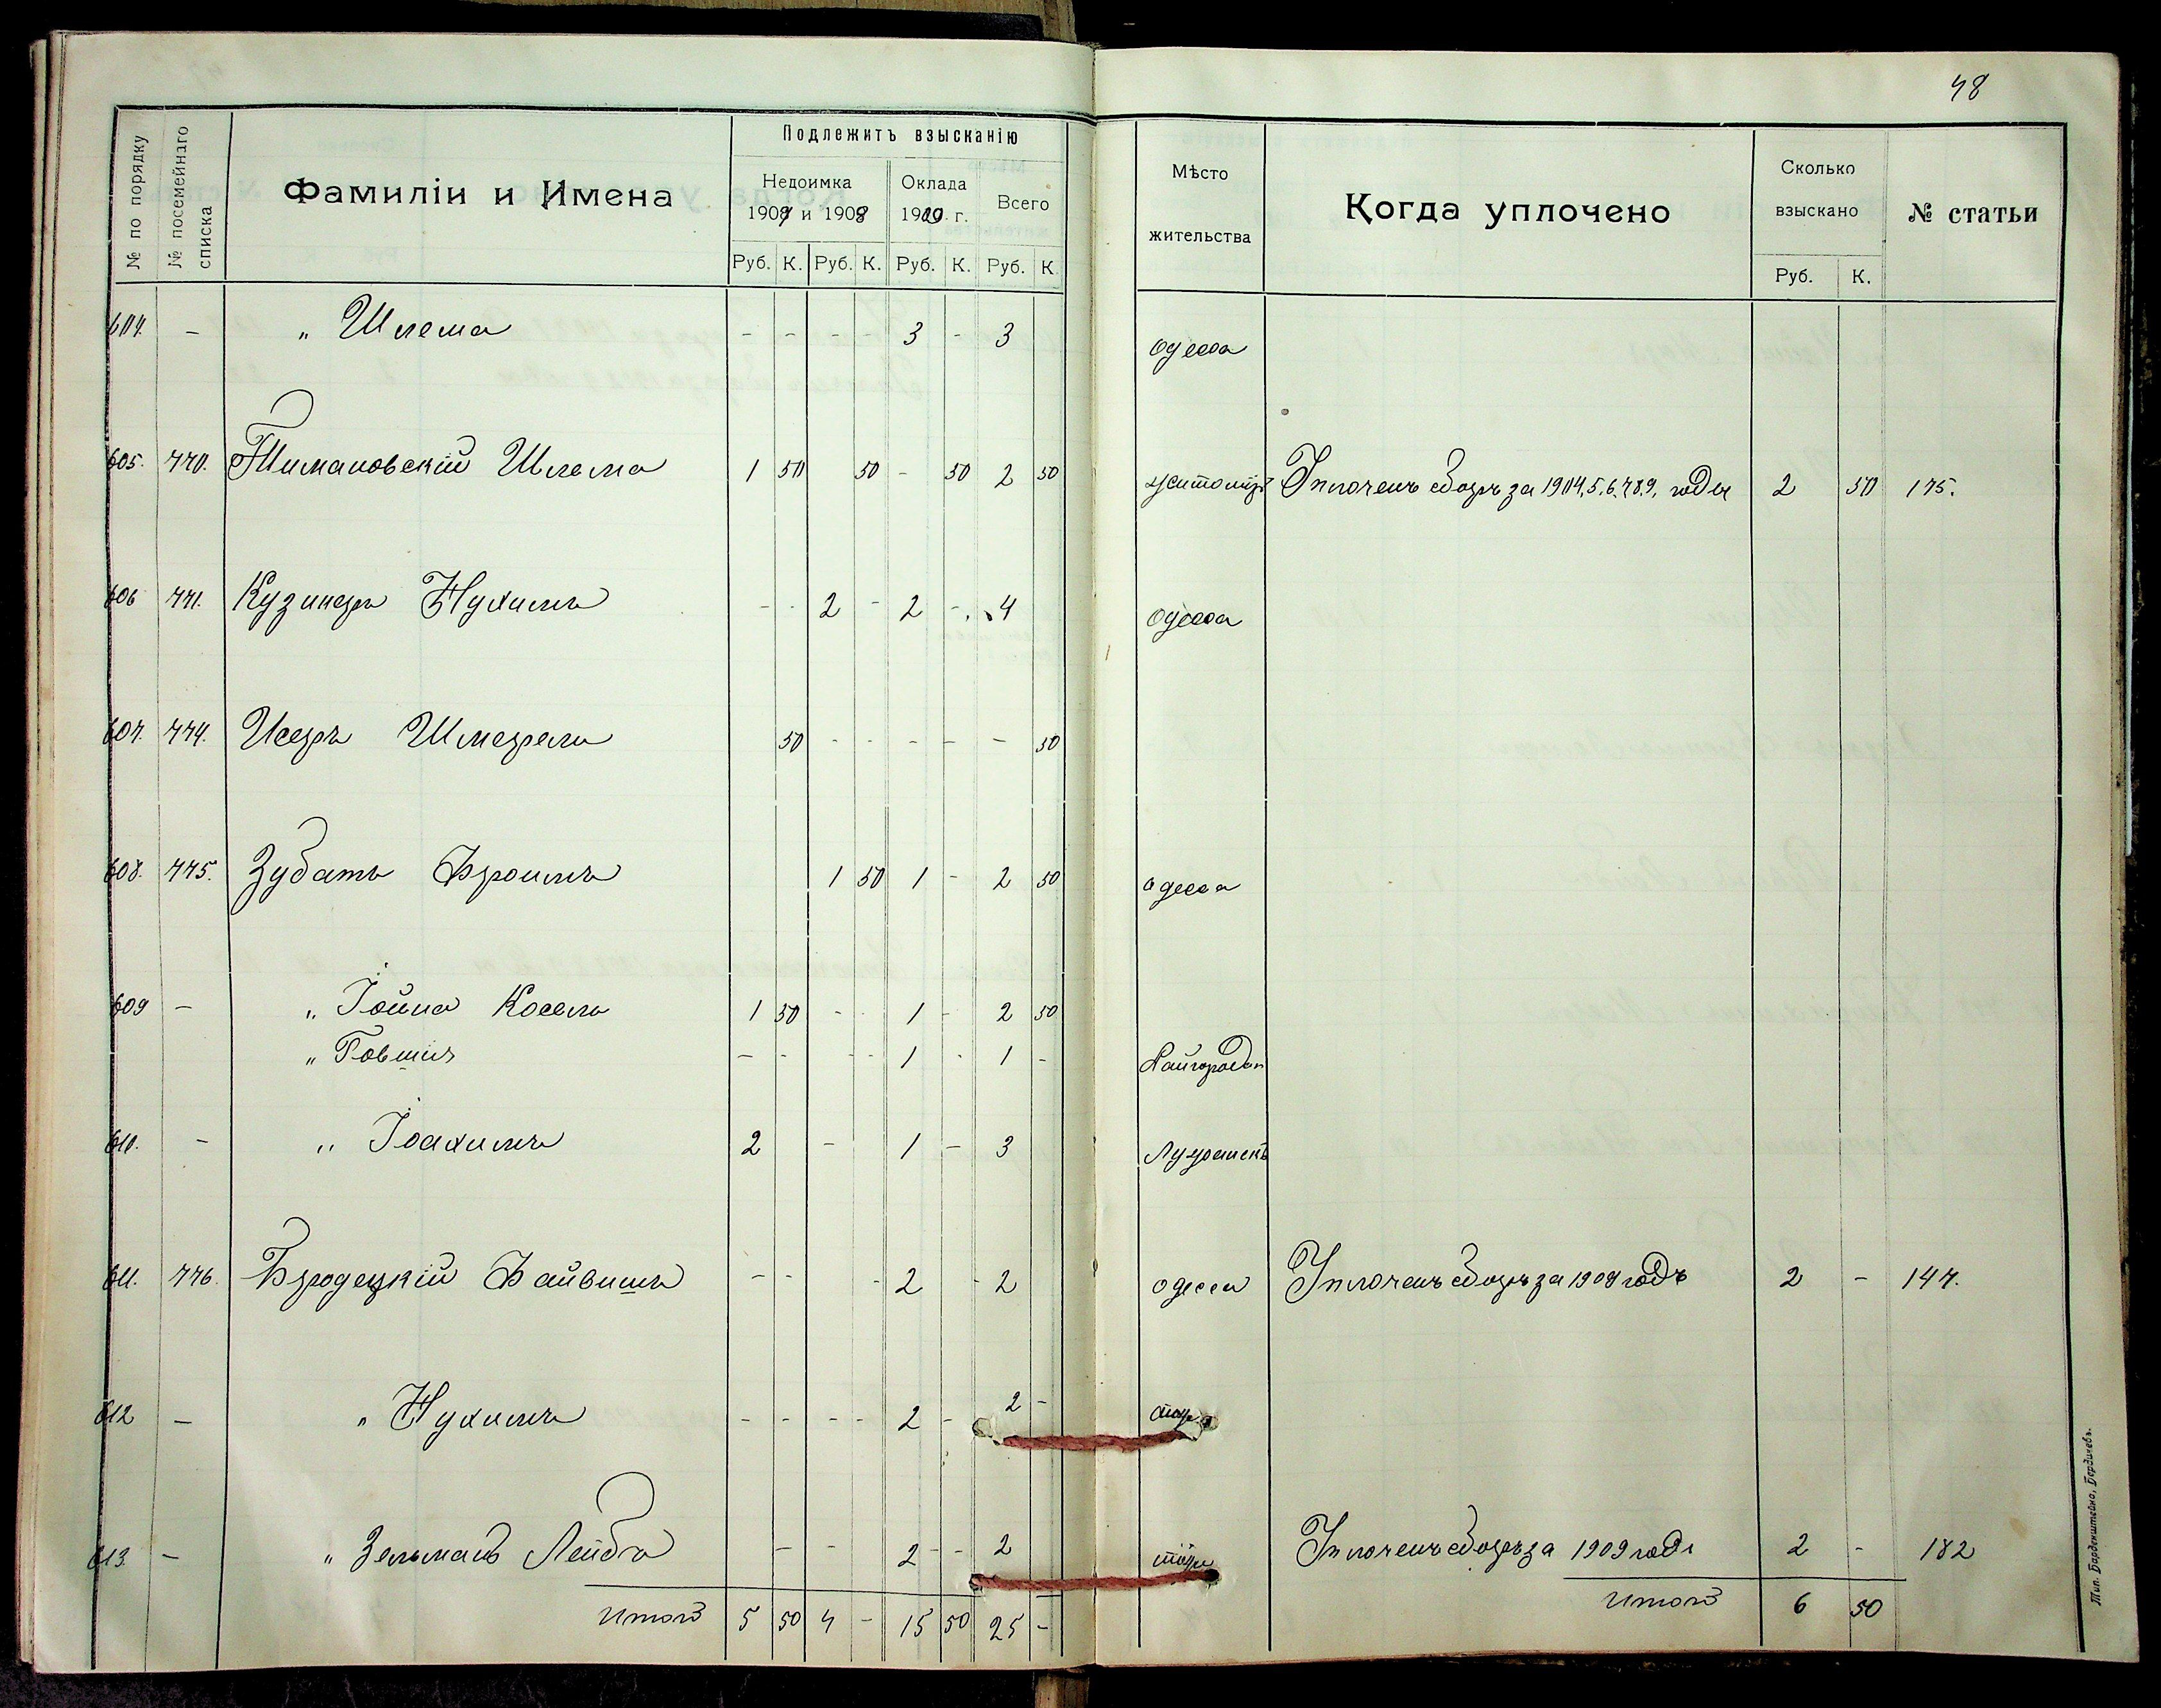 48
№ по порядку | № посемейнаго списка | Фамиліи и Имена | Подлежитъ взысканію | Мѣсто жительства | Когда уплочено | Сколько взыскано | № статьи
Недоимка 1907 и 1908 | Оклада 1909 г. | Всего
Руб. К. Руб. К. Руб. К. Руб. К. | Руб. К.
604. - " Шлема - - - - 3 - 3 Одесса
605. 770. Тимановскій Шлема 1 50 50 - 50 2 50 Житоміръ Уплоченъ сборъ за 1904,5,6,7,8,9, годы 2 50 175.
606 771. Кузинеръ Нухимъ - - 2 - 2 - 4 Одесса
607. 774. Исеръ Шмерель 50 - - - - - 50
608. 775. Зубатъ Фроимъ 1 50 1 - 2 50 Одесса
609 - " Іойна Косель 1 50 - - 1 - 2 50
" Говшія - - - - 1 - 1 - Райгородъ
610. - " Іоахимъ 2 - 1 - 3
611. 776. Бродецкій Файвишъ - - - 2 - 2 Одесса Уплоченъ сборъ за 1909 годъ 2 - 147.
612 - " Нухимъ - - - - 2 - 2 -
613. - " Зельманъ Лейба - - - 2 - - 2 Уплоченъ сборъ за 1909 годъ 2 - 182
Итого 5 50 4 - 15 50 25 - Итого 6 50
Тип. Барденштейна, Бердичевъ.